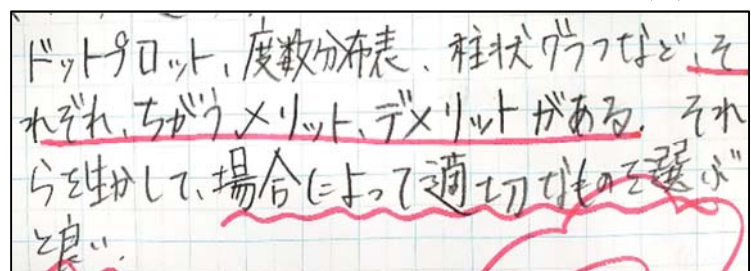 ドットプロット、度数分布表、柱状グラフなど、そ
れぞれ、ちがうメリット、デメリットがある。それ
らを生かして、場合によって適切なものを選ぶ
と良い。